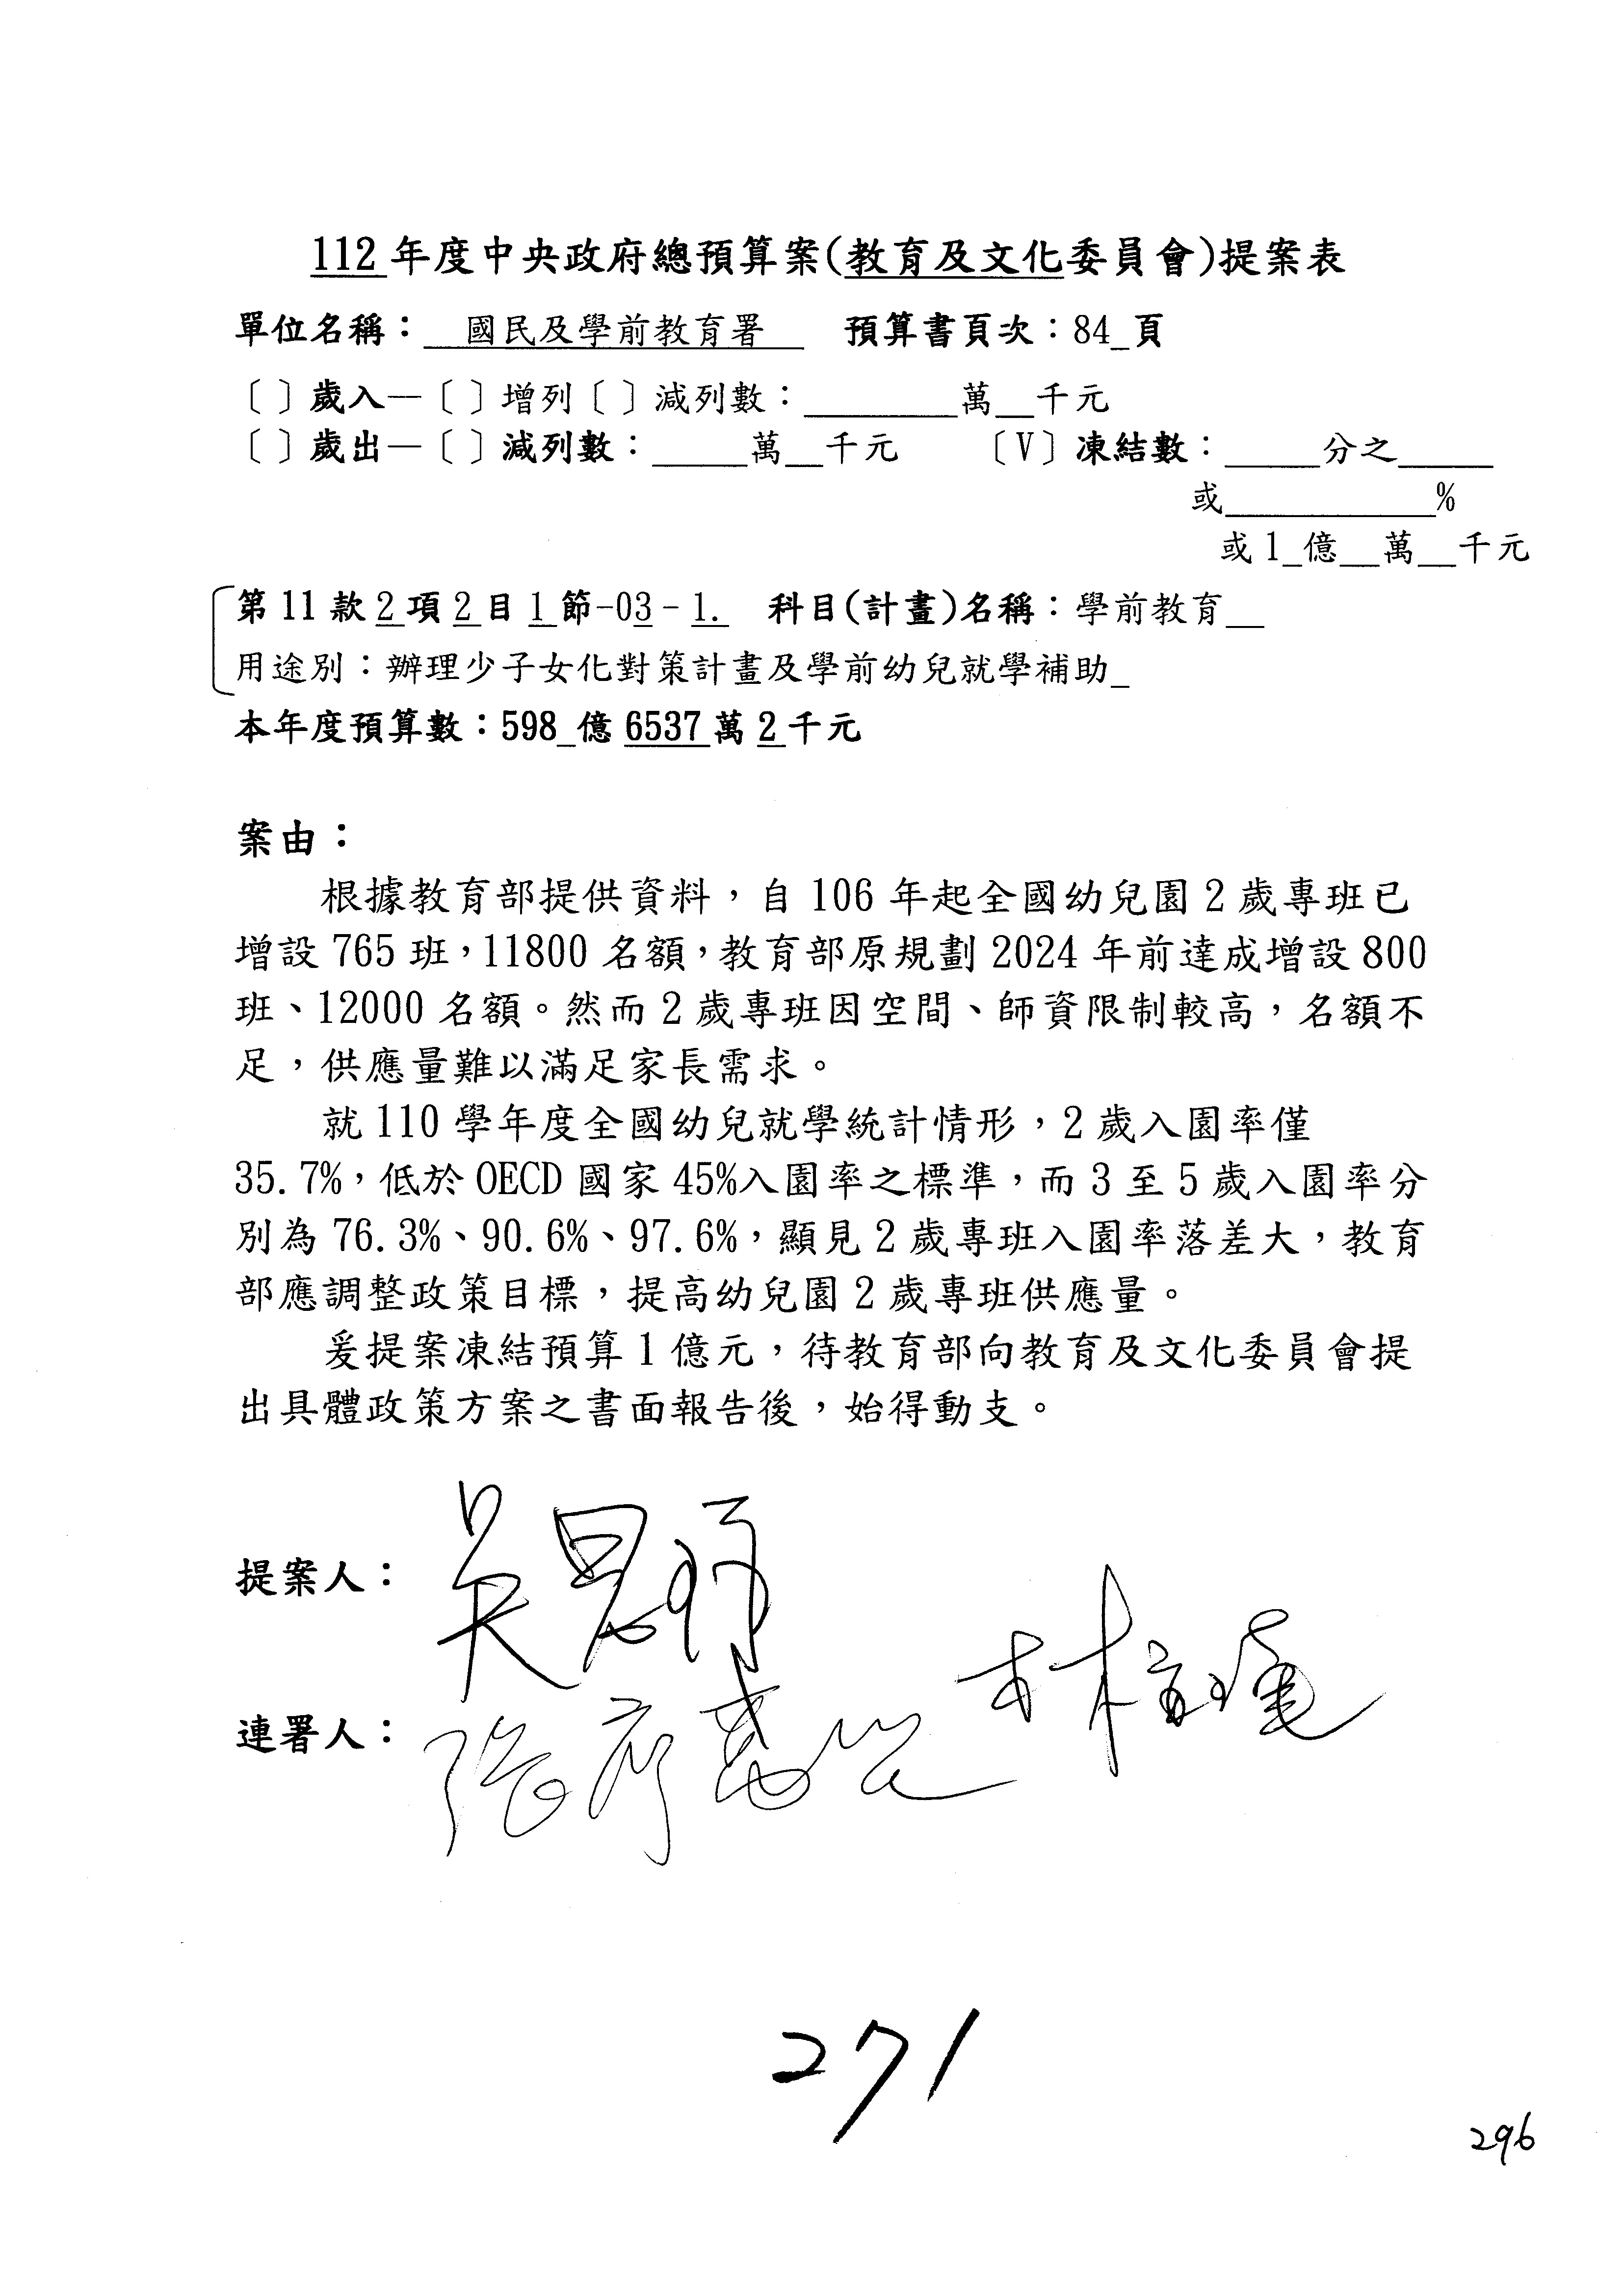 112年度中央政府總預算案(教育及文化委員會)提案表
單位名稱：＿國民及學前教育署＿ 預算書頁次：84_頁
〔 〕歲入—〔 〕增列〔 〕減列數：________萬__千元
〔 〕歲出—〔 〕減列數：_____萬__千元 〔V〕凍結數：_____分之_____
或___________%
或1_億__萬__千元
第11款2項2目1節-03-1. 科目(計畫)名稱：學前教育__
用途別：辦理少子女化對策計畫及學前幼兒就學補助_
本年度預算數：598_億6537萬2千元
案由：
根據教育部提供資料，自106年起全國幼兒園2歲專班已
增設765班，11800名額，教育部原規劃2024年前達成增設800
班、12000名額。然而2歲專班因空間、師資限制較高，名額不
足，供應量難以滿足家長需求。
就110學年度全國幼兒就學統計情形，2歲入園率僅
35.7%，低於OECD國家45%入園率之標準，而3至5歲入園率分
別為76.3%、90.6%、97.6%，顯見2歲專班入園率落差大，教育
部應調整政策目標，提高幼兒園2歲專班供應量。
爰提案凍結預算1億元，待教育部向教育及文化委員會提
出具體政策方案之書面報告後，始得動支。
提案人：吳思瑤
連署人：張廖萬堅 林宜瑾
271
296